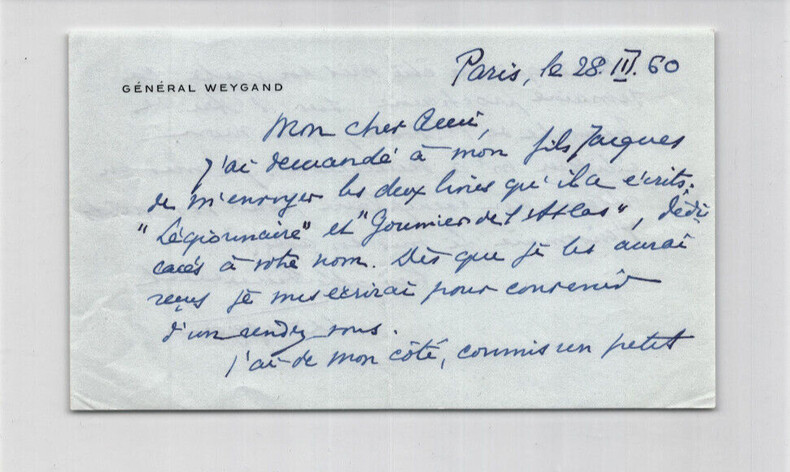 GÉNÉRAL WEYGAND
Paris, le 28.III.60
Mon cher Ami,
J'ai demandé à mon fils Jacques
de m'envoyer les deux livres qu'il a écrits:
"Légionnaire" et "Goumier de l'Atlas", dédi
cacés à votre nom. Dès que je les aurai
reçus je vous écrirai pour convenir
d'un rendez vous.
J'ai de mon côté, commis un petit